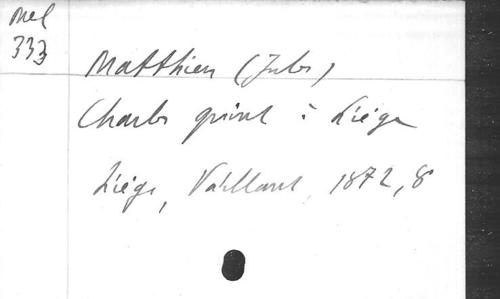 Mel
333
Matthieu (Jules)
Charles quint à Liége
Liége, Vaillant, 1872, 8